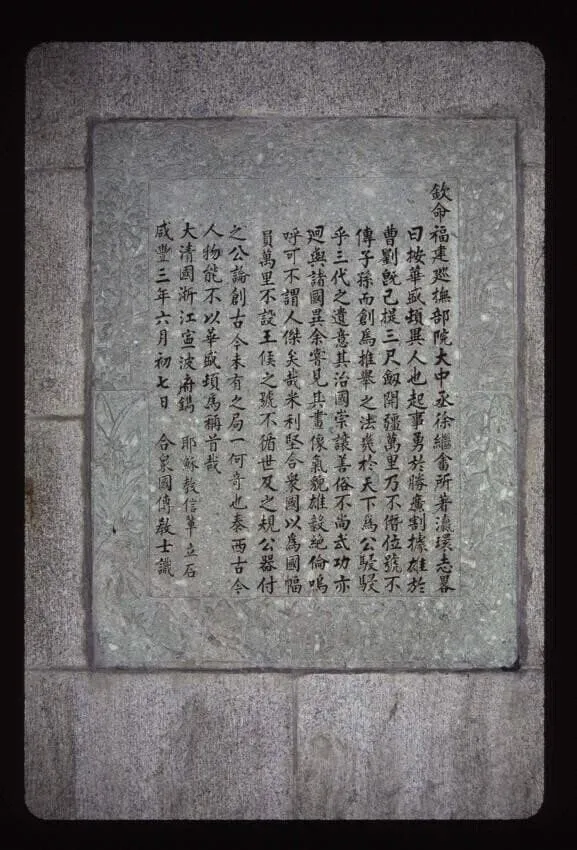 欽命福建巡撫部院大中丞徐繼畬所著瀛環志畧
曰按華盛頓異人也起事勇於勝廣割據雄於
曹劉旣已提三尺劍開疆萬里乃不僭位號不
傳子孫而創為推舉之法幾於天下為公駸駸
乎三代之遺意其治國崇讓善俗不尚武功亦
迥與諸國異余嘗見其畫像氣貌雄毅絕倫嗚
呼可不謂人傑矣哉米利堅合衆國以為國幅
員萬里不設王侯之號不循世及之規公器付
之公論創古今未有之局一何奇也泰西古今
人物能不以華盛頓為稱首哉
大清國浙江寧波府鐫 耶穌教信輩立石
咸豐三年六月初七日 合衆國傳教士識